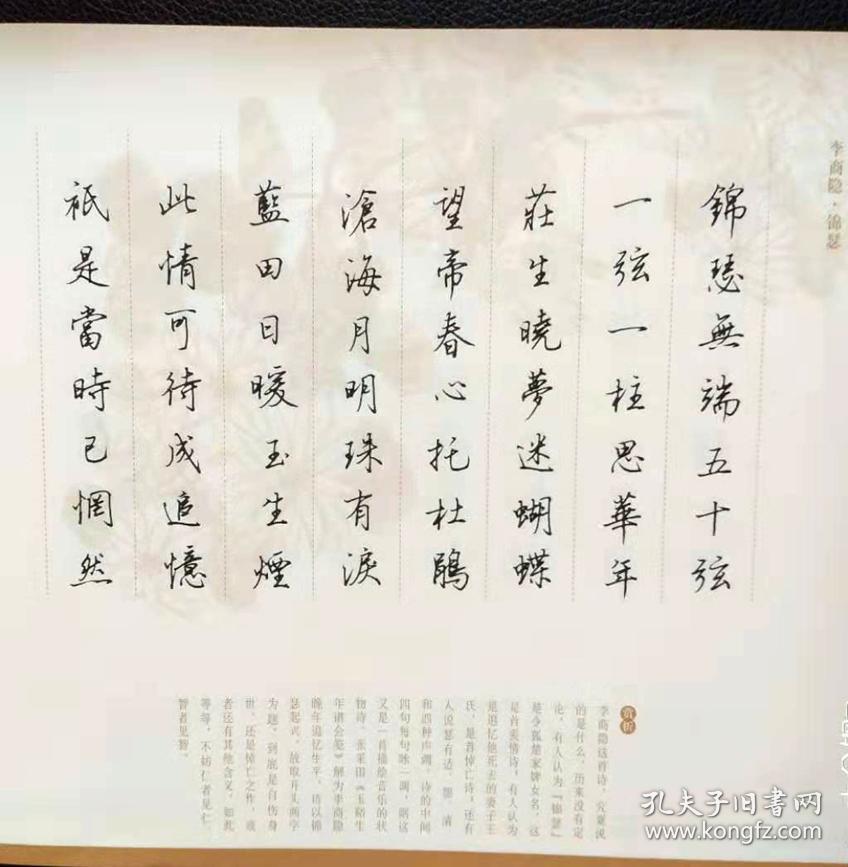 李商隐·锦瑟
錦瑟無端五十弦
一弦一柱思華年
莊生曉夢迷蝴蝶
望帝春心托杜鵑
滄海月明珠有淚
藍田日暖玉生煙
此情可待成追憶
祇是當時已惘然
赏析
李商隐这首诗,究竟说
的是什么,历来没有定
论,有人认为『锦瑟』
是令狐楚家婢女名,这
是首爱情诗,有人认为
是追忆他死去的妻子王
氏,是首悼亡诗,还有
人说瑟有适、怨、清、
和四种声调,诗的中间
四句每句咏一调,则这
又是一首描绘音乐的状
物诗。张采田《玉谿生
年谱会笺》解为李商隐
晚年追忆生平,诗以锦
瑟起兴,故取开头两字
为题。到底是自伤身
世,还是悼亡之作,或
者还有其他含义,如此
等等,不妨仁者见仁,
智者见智。
孔夫子旧书网
www.kongfz.com